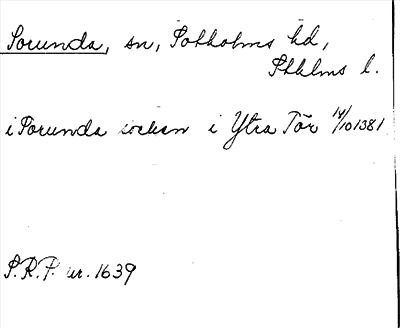 Sorunda, sn, Sotholms hd,
Sthlms l.
i Sorunda sochen i Ytra Tör 14/10 1381
S.R.P. nr. 1639